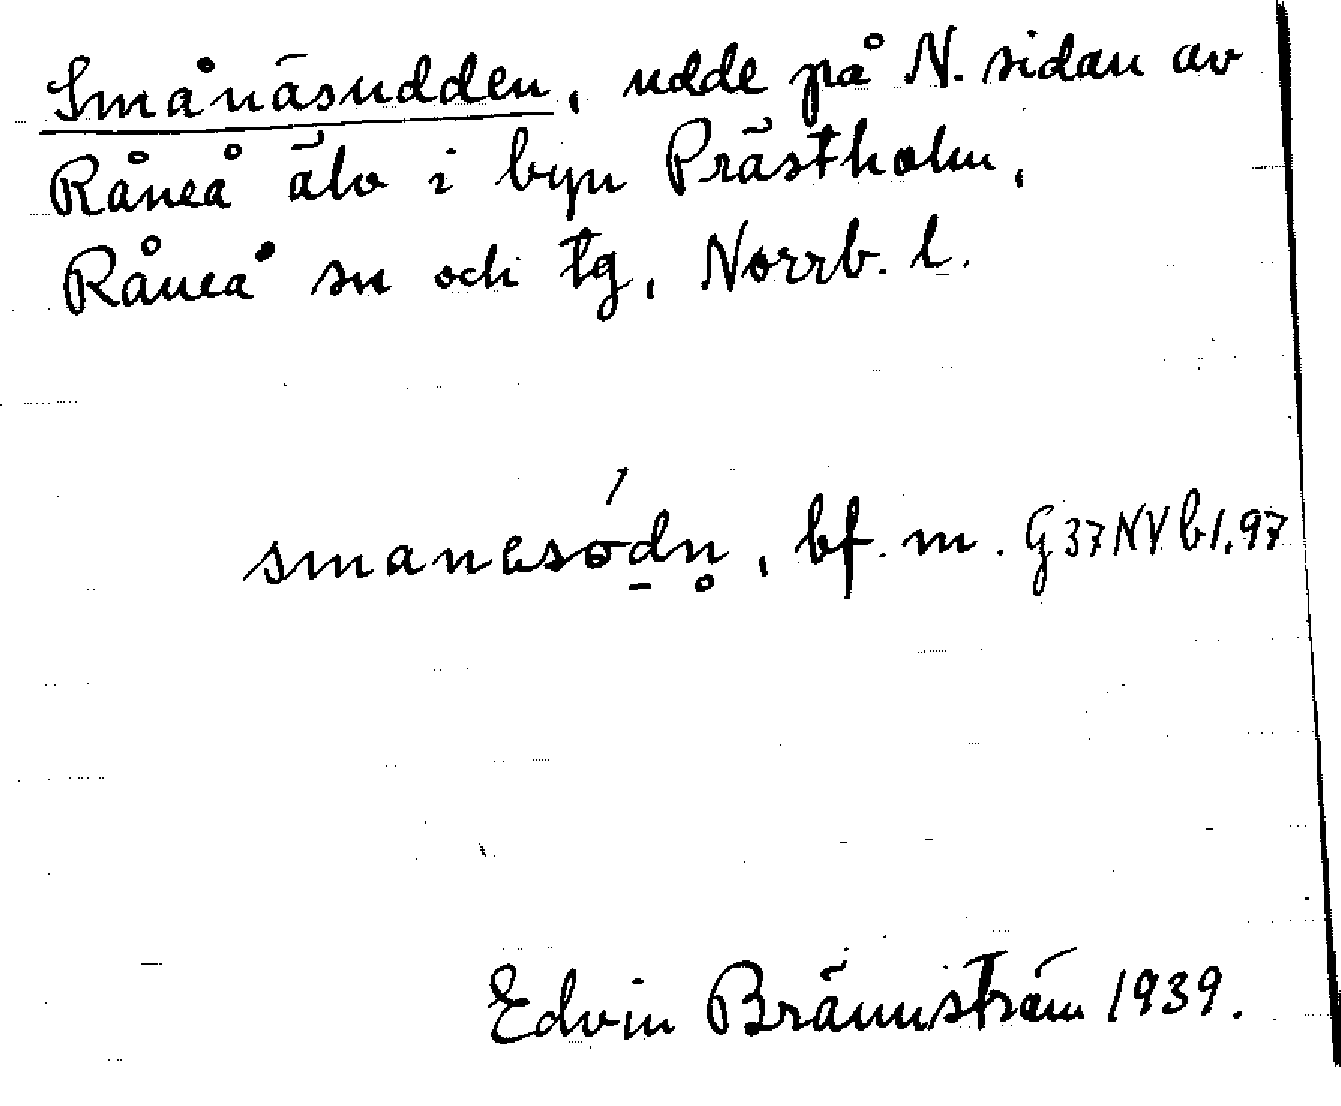 Smånäsudden, udde på N. sidan av
Råneå älv i byn Prästholm,
Råneå sn och tg, Norrb. l.
smanesó̱dn̥, bf. m. G37NVb1.97
Edvin Brännström 1939.